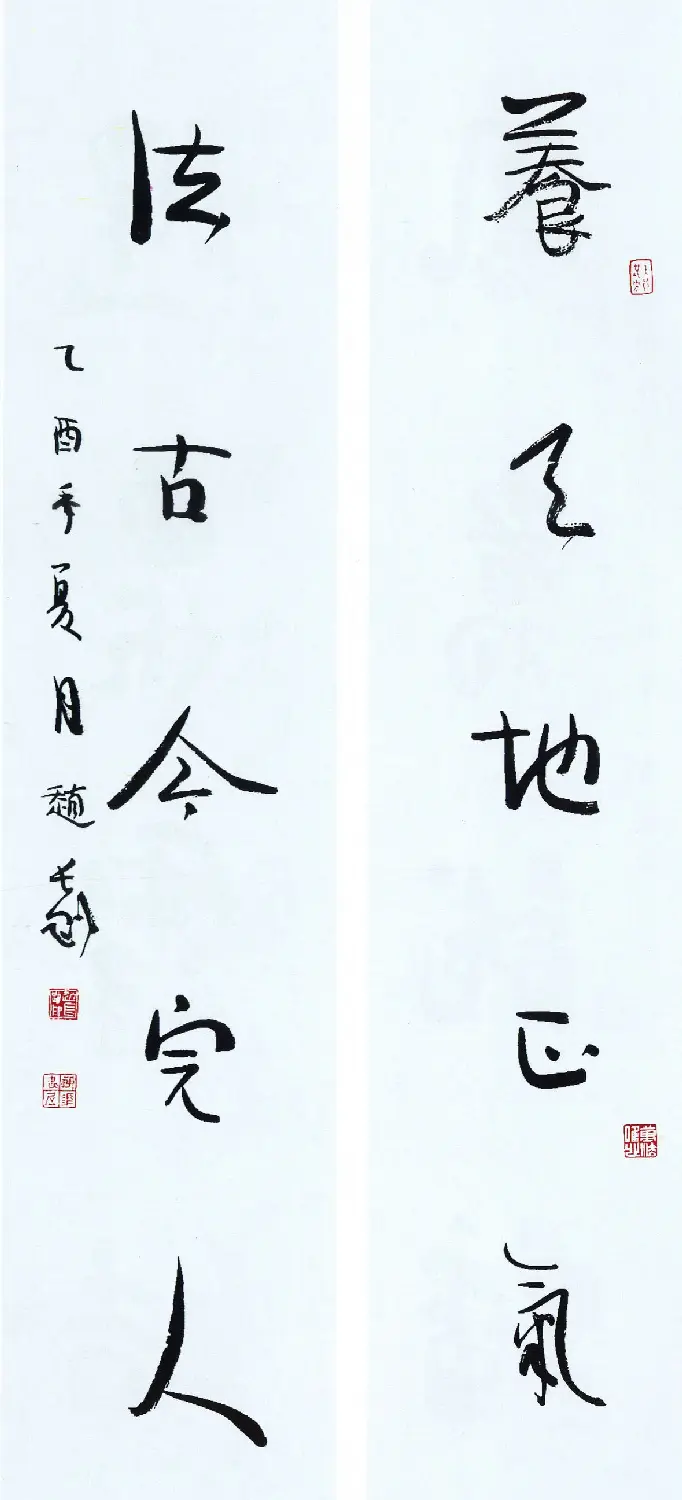 養天地正氣
法古今完人
乙酉年夏月趙長剛